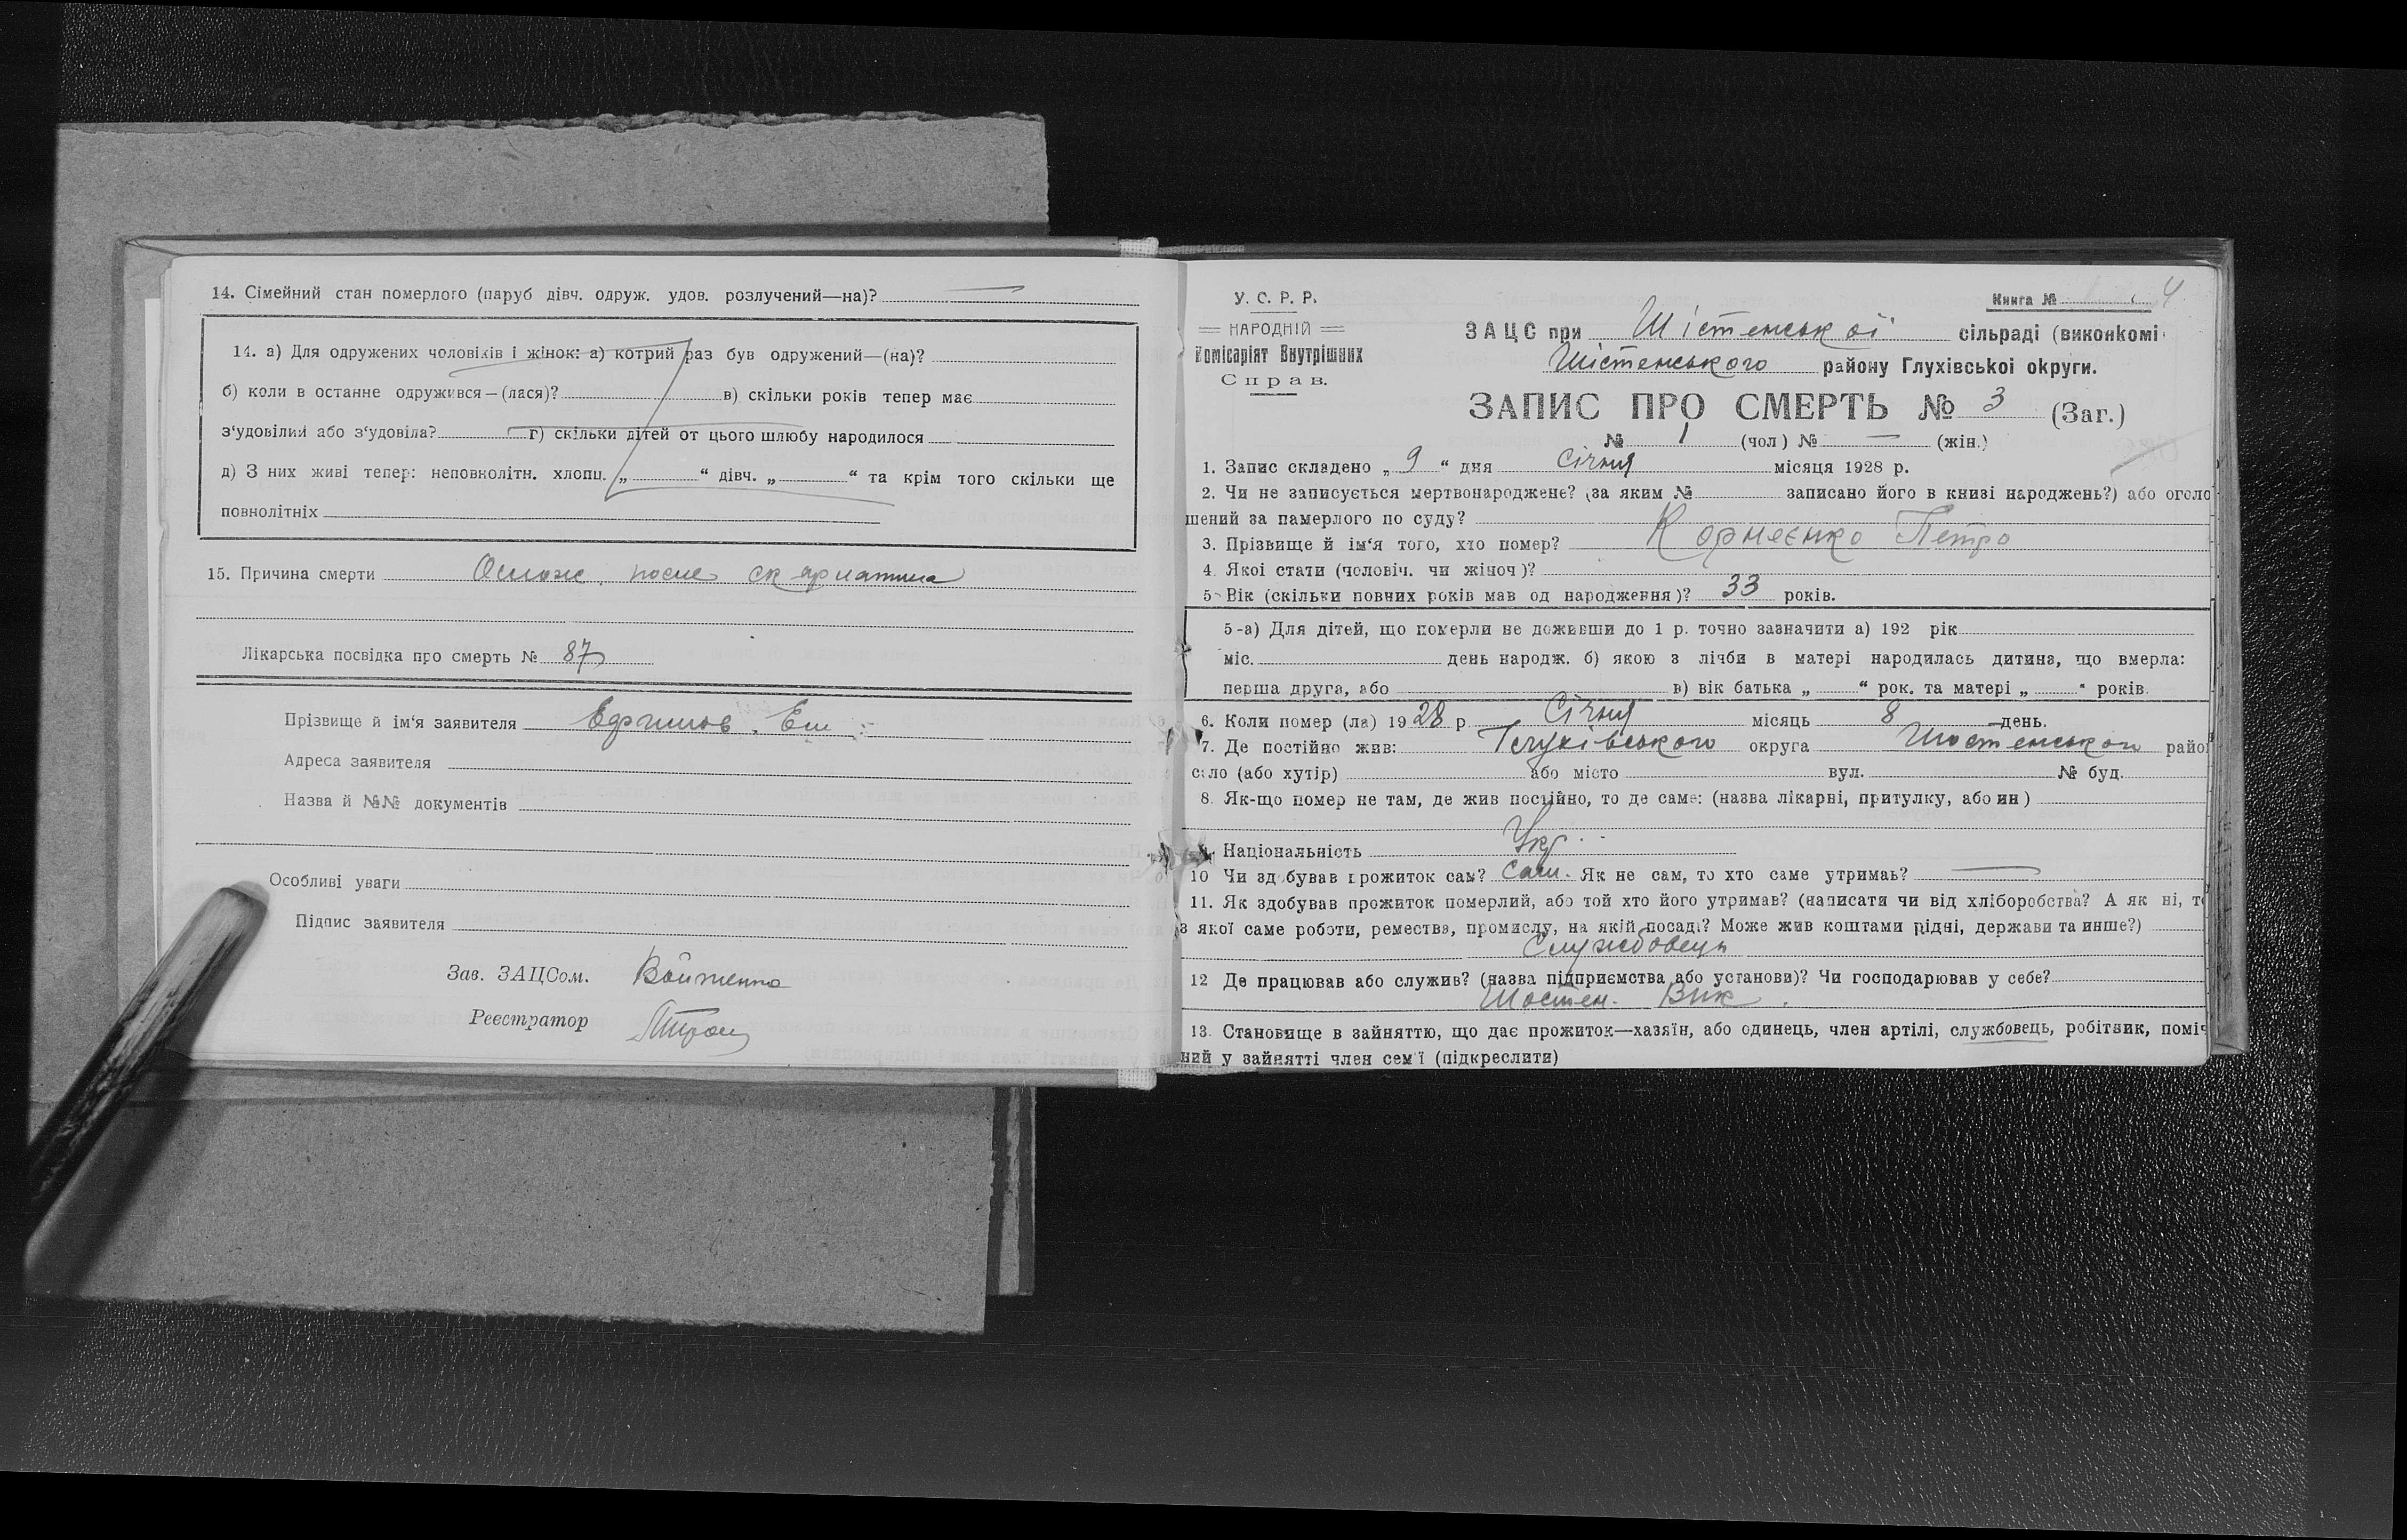 14. Сімейний стан померлого (паруб дівч. одруж. удов. розлучений—на)?
14. а) Для одружених чоловіків і жінок: а) котрий раз був одружений—(на)?
б) коли в останне одружився—(лася)? в) скільки років тепер має
з‘удовілий або з‘удовіла? г) скільки дітей от цього шлюбу народилося
д) З них живі тепер: неповнолітн. хлопц. „ “ дівч. „ “ та крім того скільки ще
повнолітніх
15. Причина смерти после скарлатина
Лікарська посвідка про смерть № 87
Прізвище й ім‘я заявителя Ефимов
Адреса заявителя
Назва й №№ документів
Особливі уваги
Підпис заявителя
Зав. ЗАЦСом.
Реєстратор
У. С. Р. Р.
НАРОДНІЙ
Комісаріят Внутрішних
Справ.
Книга № 4
ЗАЦС при Шістенської сільраді (виконкомі
Шістенського району Глухівської округи.
ЗАПИС ПРО СМЕРТЬ № 3 (Заг.)
№ 1 (чол) № — (жін.)
1. Запис складено „ 9 “ дня Січня місяця 1928 р.
2. Чи не записується мертвонароджене? (за яким № записано його в книзі народжень?) або оголо
шений за памерлого по суду?
3. Прізвище й ім‘я того, хто помер? Корнеєнко Петро
4. Якої стати (чоловіч. чи жіноч)?
5. Вік (скільки повних років мав од народження)? 33 років.
5-а) Для дітей, що померли не доживши до 1 р. точно зазначити а) 192 рік
міс. день народж. б) якою з лічби в матері народилась дитина, що вмерла:
перша друга, або в) вік батька „ “ рок. та матері „ “ років.
6. Коли помер (ла) 1928 р Січня місяць 8 день.
7. Де постійно жив: Глухівського округа Шостенського район
село (або хутір) або місто вул. № буд.
8. Як-що помер не там, де жив постійно, то де саме: (назва лікарні, притулку, або ин)
9. Національність Укр.
10 Чи здобував прожиток сам? Сам. Як не сам, то хто саме утримає? —
11. Як здобував прожиток померлий, або той хто його утримав? (написати чи від хліборобства? А як ні, то
з якої саме роботи, ремества, промислу, на якій посаді? Може жив коштами рідні, держави та инше?)
Службовець
12 Де працював або служив? (назва підприємства або установи)? Чи господарював у себе?
Шостен. Вик.
13. Становище в зайняттю, що дає прожиток—хазяїн, або одинець, член артілі, службовець, робітник, поміч
ний у зайнятті член сем‘ї (підкреслити)